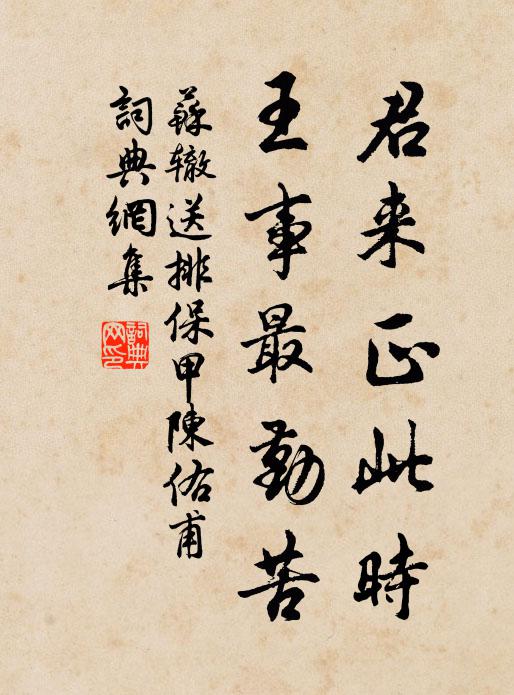 君来正此時
王事最勤苦
蘇辙送排保甲陳佑甫
詞典網集
詞典网印